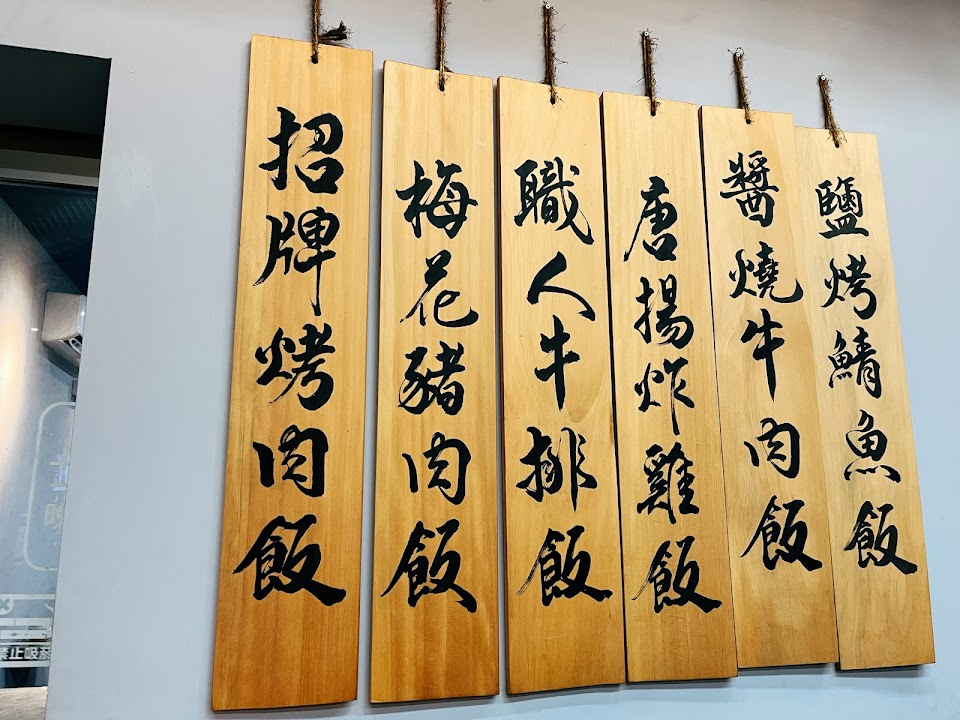 招牌烤肉飯
梅花豬肉飯
職人牛排飯
唐揚炸雞飯
醬燒牛肉飯
鹽烤鯖魚飯
禁止吸菸